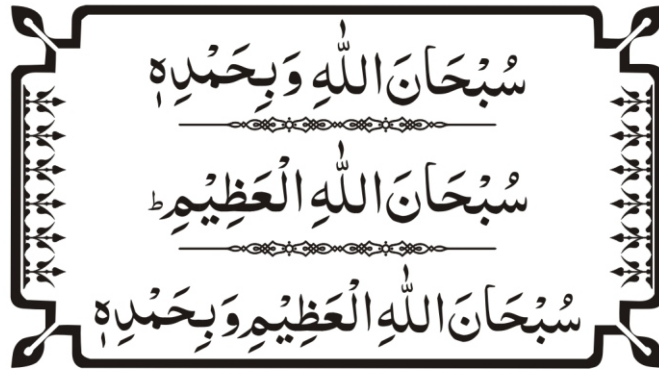 سُبْحَانَ اللّٰهِ وَبِحَمْدِهٖ
سُبْحَانَ اللّٰهِ الْعَظِیْمِ ؕ
سُبْحَانَ اللّٰهِ الْعَظِیْمِ وَبِحَمْدِهٖ